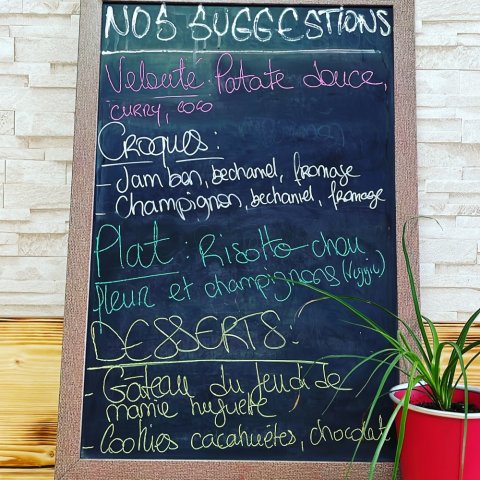 NOS SUGGESTIONS
Velouté : Patate douce,
CURRY, COCO
Croques :
- Jambon, bechamel, fromage
- Champignon, bechamel, fromage
Plat : Risotto chou
fleur et champignons (veggie)
DESSERTS :
- Gateau du jeudi de
mamie huguette
- Cookies cacahuètes, chocolat